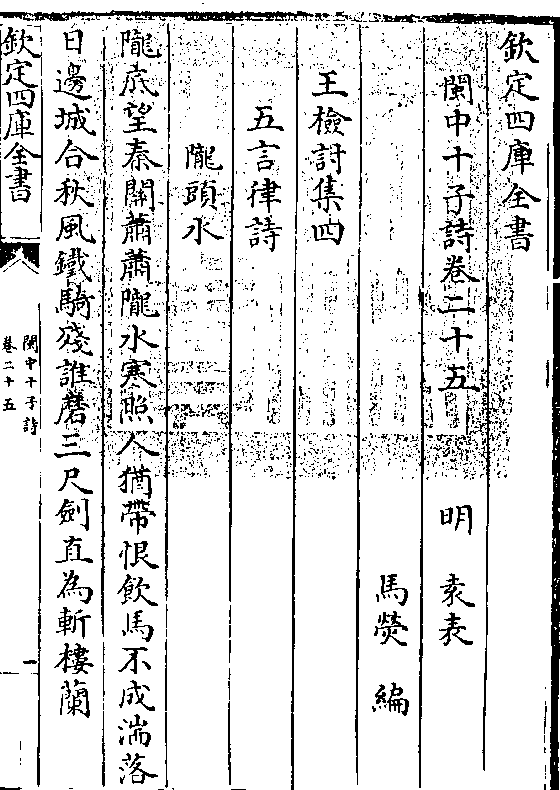 欽定四庫全書
閩中十子詩卷二十五
明 袁表
馬熒 編
王檢討集四
五言律詩
隴頭水
隴底望秦關蕭蕭隴水寒照人猶帶恨飲馬不成湍落
日邊城合秋風鐵騎殘誰磨三尺劍直為斬樓蘭
欽定四庫全書
閩中十子詩
卷二十五
一